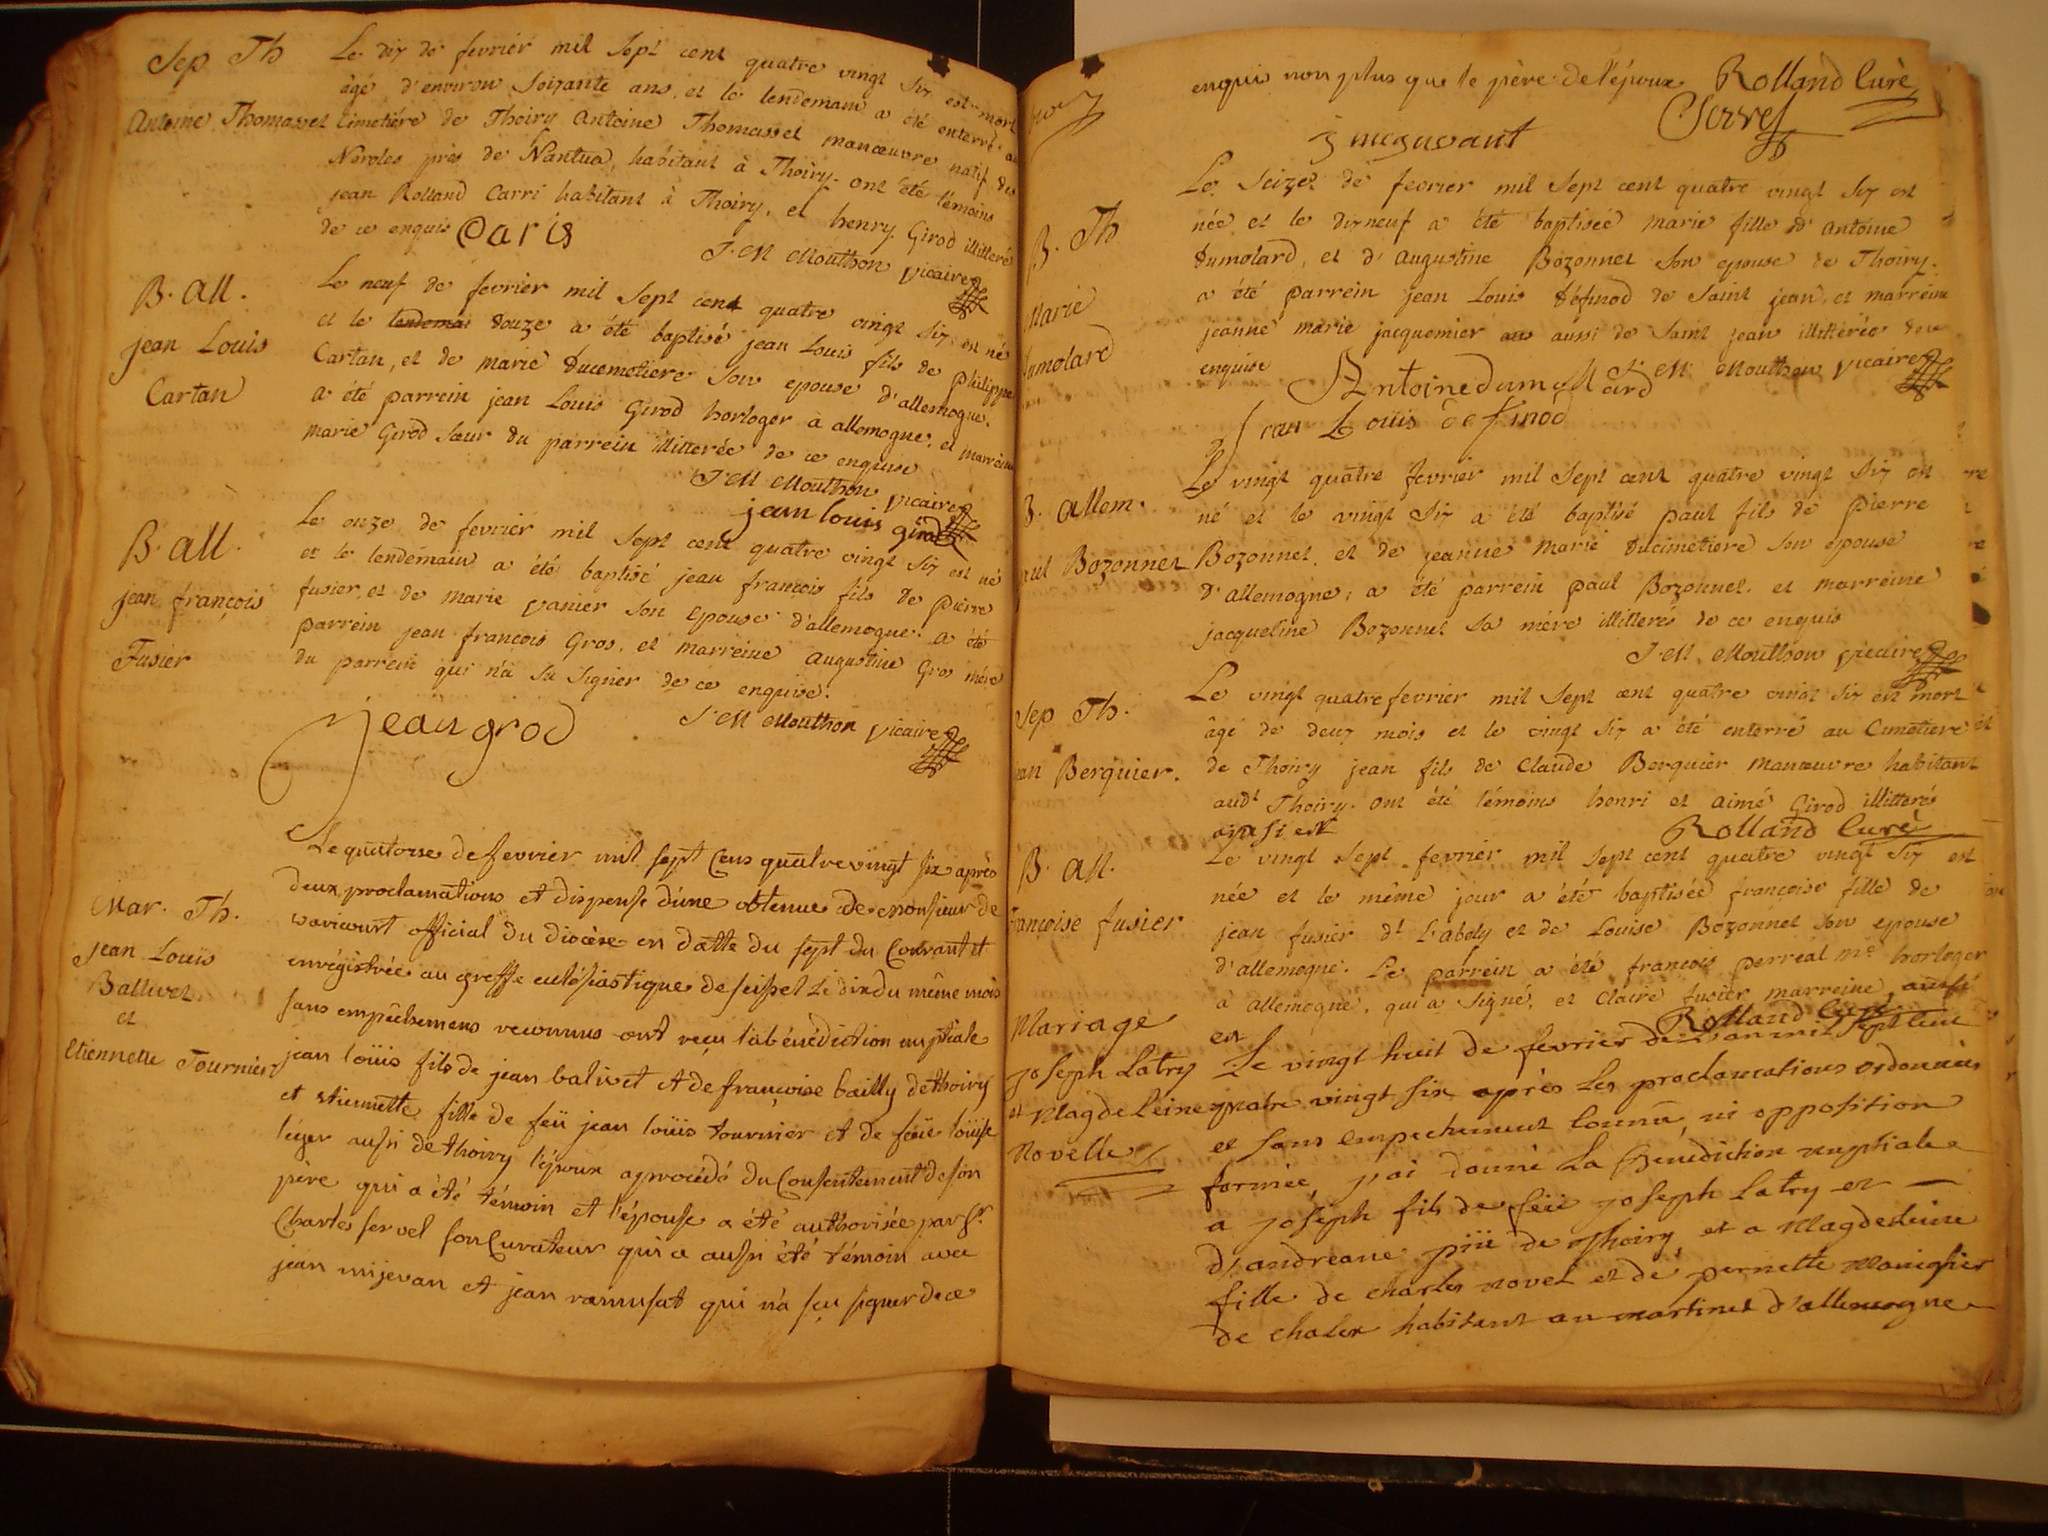 Sep Th
Antoine Thomasset
Le dix de fevrier mil Sept cent quatre vingt Six est mort
âgé d'environ Soixante ans, et le lendemain a été enterré au
Cimetiére de Thoiry Antoine Thomasset manœuvre natif des
Neroles près de Nantua, habitant à Thoiry. ont été témoins
jean Rolland Carri habitant à Thoiry, et henry Girod illitteré
de ce enquis Caris
J. M Mouthon vicaire
B. All.
jean Louis
Cartan
Le neuf de fevrier mil Sept cent quatre vingt Six est né
et le lendemai douze a été baptisé jean Louis fils de philippe
Cartan, et de marie Ducemetiere Son epouse d'allemogne.
a été parrein jean Louis Girod horloger à allemogne, et marreine
marie Girod Sœur du parrein illiterée de ce enquise
J. M Mouthon vicaire
jean louis girod
B. All.
jean françois
Fusier
Le onze de fevrier mil Sept cent quatre vingt Six est né
et le lendemain a été baptisé jean françois fils de pierre
fusier, et de marie vanier Son epouse d'allemogne. a été
parrein jean françois Gros, et marreine augustine Gros mère
du parrein qui n'a Su Signer de ce enquise.
J. M Mouthon vicaire
jean grod
Mar. Th.
jean Louis
Ballivet
et
Etiennette Tournier
Le quatorse de fevrier mil sept Cens quatre vingt six après
deux proclamations et dispense d'une obtenue de monsieur de
waricourt official du diocèse en datte du sept du Courant et
enrégistrée au greffe eclésiastique de seissel le dix du même mois
sans empêchemens reconnus ont reçu la bénédiction nuptiale
jean loüis fils de jean balivet et de françoise bailly de thoiry
et etiennette fille de feü jean loüis tournier et de feüe loüise
léger aussi de thoiry l'époux a procédé du Consentement de son
père qui a été témoin et l'épouse a été authorisée par Sr.
Charles servel son Curateur qui a aussi été témoin avec
jean mijevan et jean ramusat qui n'a sçu signer de ce
enquis non plus que le père de l'époux Rolland Curé
Servel
j megevant
B. Th
Marie
Dumolard
Le Seize de fevrier mil Sept cent quatre vingt Six est
née et le dixneuf a été baptisée marie fille d'antoine
Dumolard, et d'augustine Bozonnet Son epouse de Thoiry.
a été parrein jean Louis définod de Saint jean, et marreine
jeanne marie jacquemier aussi de Saint jean illittérée de ce
enquise
J. M. Mouthon vicaire
Antoine dumollard
jean Loüis definod
B. Allem.
paul Bozonnet
Le vingt quatre fevrier mil Sept cent quatre vingt Six est
né et le vingt Six a été baptisé paul fils de pierre
Bozonnet, et de jeanne Marie Ducimetiere Son epouse
d'allemogne, a été parrein paul Bozonnet, et marreine
jacqueline Bozonnet Sa mére illitterés de ce enquis
J. M. Mouthon vicaire
Sep Th.
jean Berquier.
Le vingt quatre fevrier mil Sept cent quatre vingt Six est mort
âgé de deux mois et le vingt Six a été enterré au Cimetiere
de Thoiry jean fils de Claude Berquier manœuvre habitant
audt Thoiry. ont été témoins henri et aimé Girod illitterés
ainsi est Rolland Curé
B. All.
françoise fusier
Le vingt Sept fevrier mil Sept cent quatre vingt Six est
née et le même jour a été baptisée françoise fille de
jean fusier dt L'abaly et de Louise Bozonnet Son epouse
d'allemogne. Le parrein a été françois perreal me horloger
à allemogne, qui a Signé, et Claire fusier marreine, ainsi
est Rolland Curé
Mariage
joseph Latry
et Magdeleine
Novelle
Le vingt huit de fevrier de l'an mil sept cent
quatre vingt six après les proclamations ordonnées
et sans empechement connu, ni opposition
formée, j'ai donné la Benediction nuptiale
a joseph fils de feü joseph Latry et
d'andreane piü de Thoiry, et a Magdeleine
fille de charles novel et de pernette Monighier
de chalex habitant au martinet d'allemogne